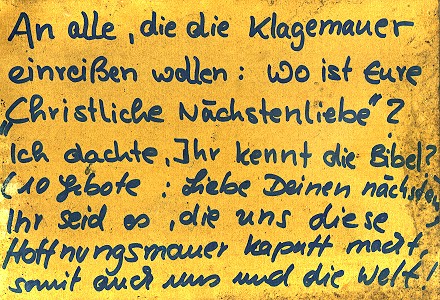 An alle, die die Klagemauer
einreißen wollen: Wo ist Eure
„Christliche Nächstenliebe"?
Ich dachte, Ihr kennt die Bibel?
(10 Gebote: Liebe Deinen nächsten)
Ihr seid es, die uns diese
Hoffnungsmauer kaputt macht,
somit auch uns und die Welt!